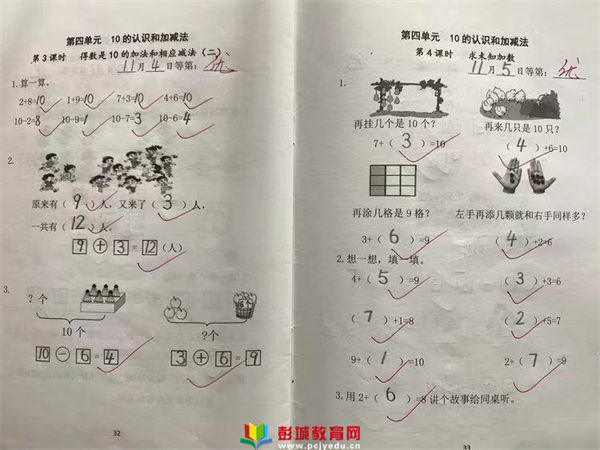 第四单元 10的认识和加减法
第3课时 得数是10的加法和相应减法(二)
11月4日等第:优
1.算一算。
2+8=10 1+9=10 7+3=10 4+6=10
10-2=8 10-9=1 10-7=3 10-6=4
2.
原来有(9)人,又来了(3)人,
一共有(12)人。
9+3=12(人)
3.
?个
10个
10-6=4
?个
3+6=9
32
第四单元 10的认识和加减法
第4课时 求未知加数
11月5日等第:优
1.
再挂几个是10个? 再来几只是10只?
7+(3)=10 (4)+6=10
再涂几格是9格? 左手再添几颗就和右手同样多?
3+(6)=9 (4)+2=6
2.想一想,填一填。
4+(5)=9 (3)+3=6
(7)+1=8 (2)+5=7
9+(1)=10 2+(7)=9
3.用2+(6)=8讲个故事给同桌听。
33
彭城教育网
www.pcjyedu.cn